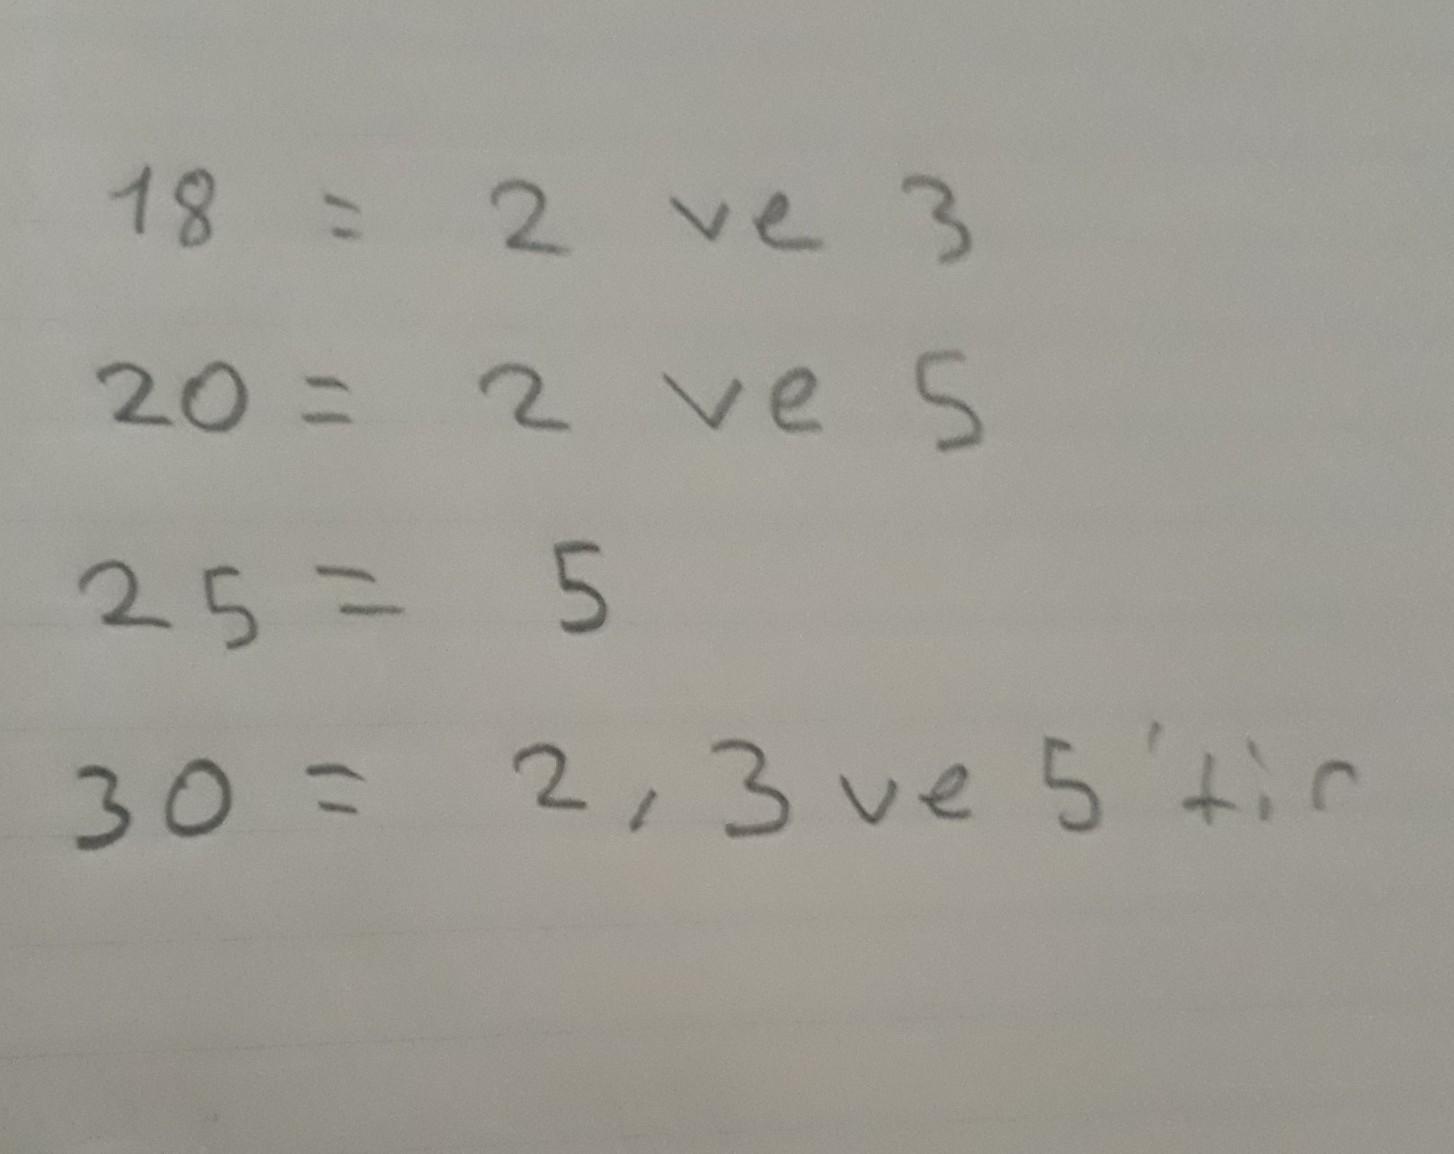 18 = 2 ve 3
20 = 2 ve 5
25 = 5
30 = 2, 3 ve 5'tir